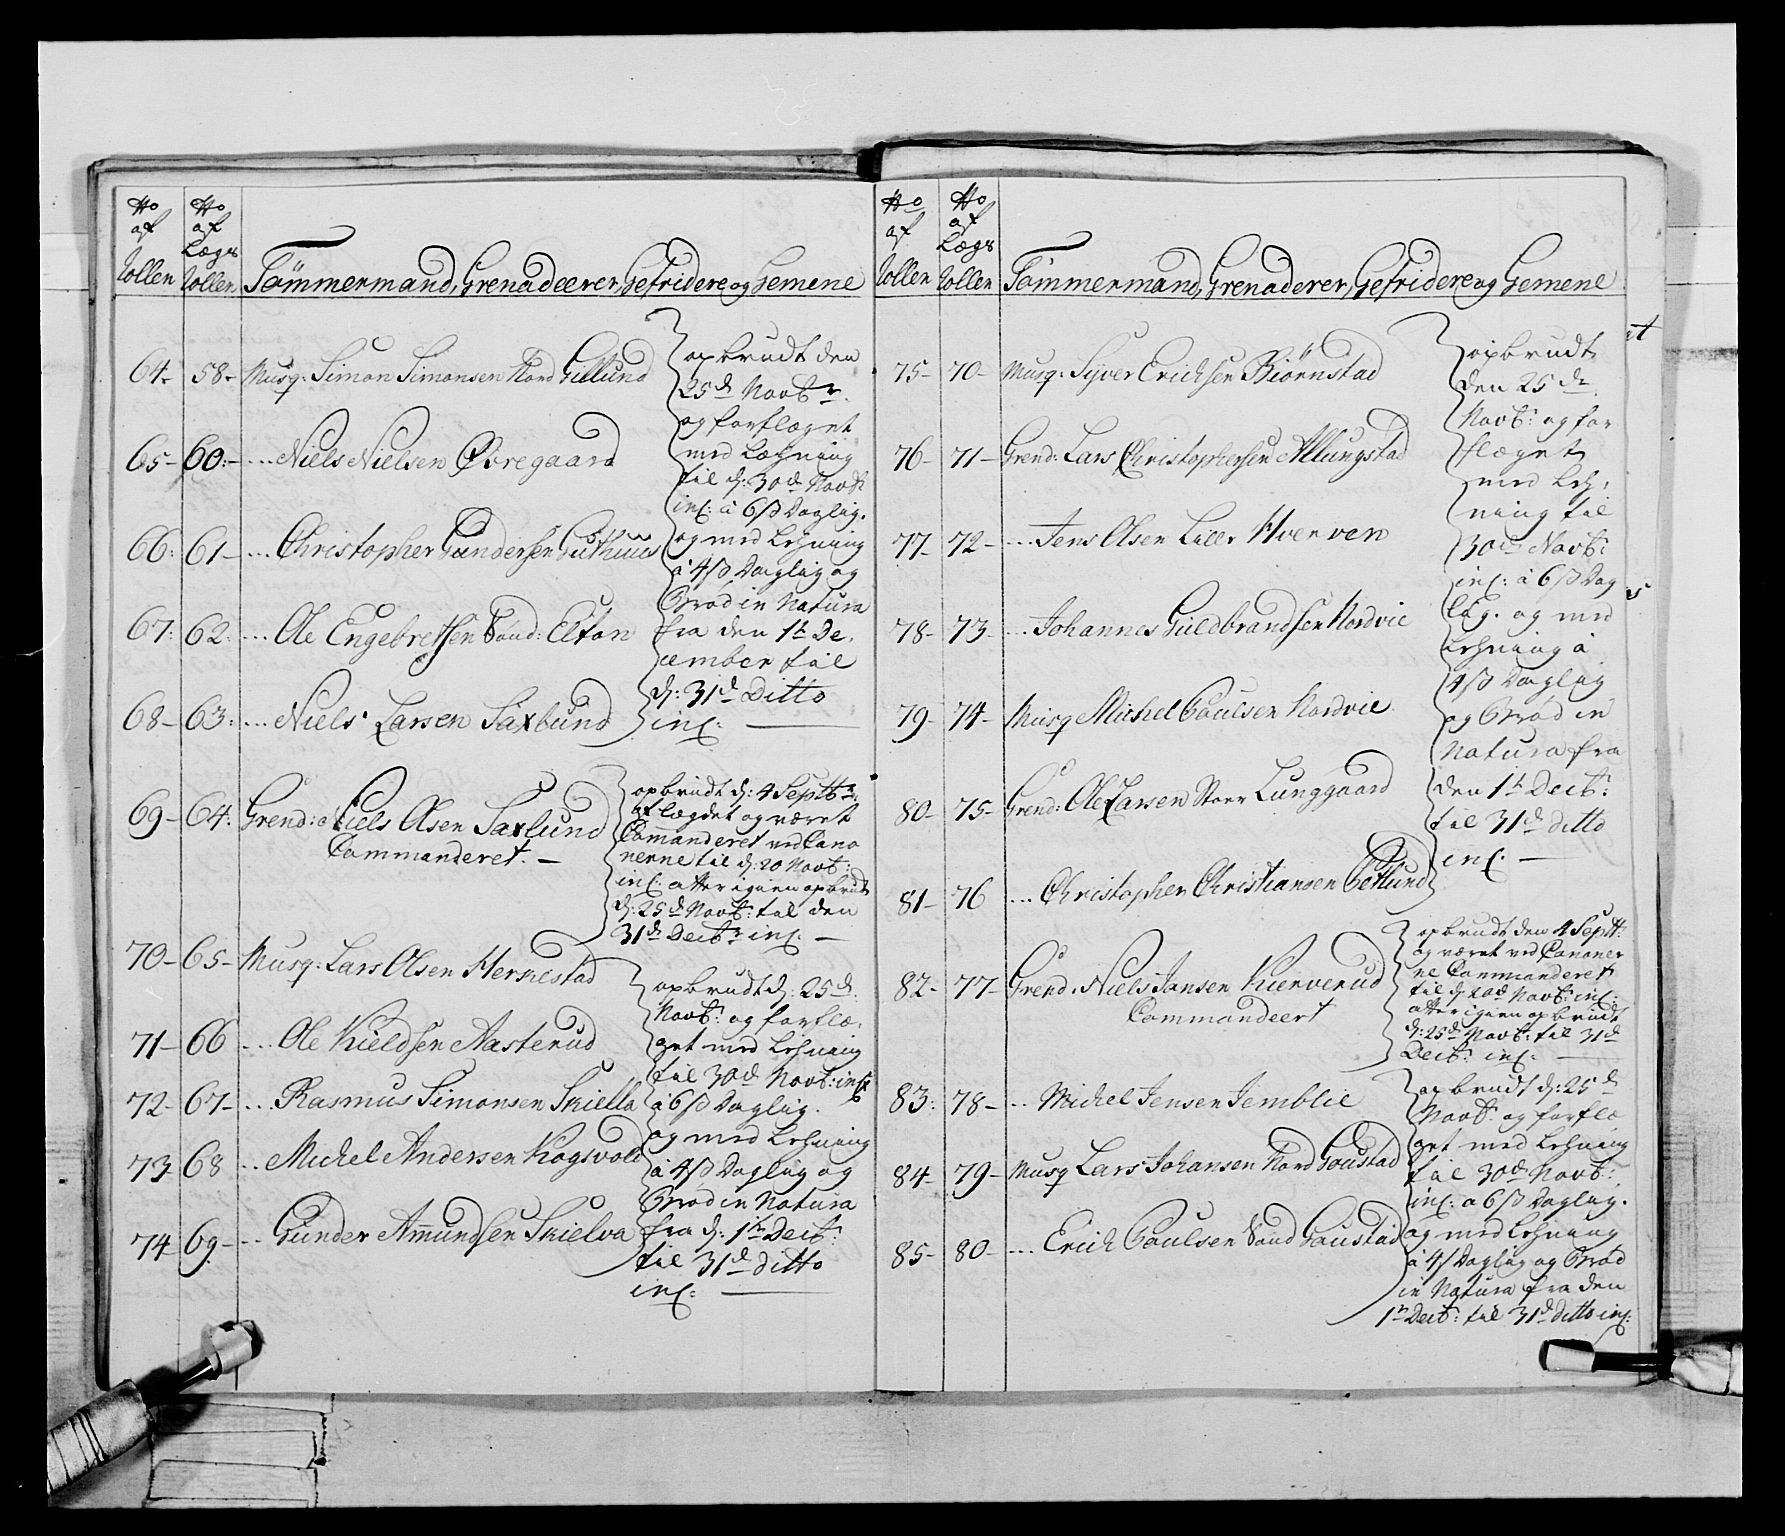 No af Rollen
No af Lægs Rollen
Tømmermand, Grenadeerer, Gefridere og Gemene
64- 58- Musq: Simon Simonsen Nord Gillund
65- 60:- ... Niels Nielsen Øvregaard
66: 61- ... Christopher Gundersen Guthuus
67: 62: ... Ole Engebretsen Sønd: Elton
68- 63: ... Niels Larsen Saxlund
opbrudt den
25d Novbr.
og forflæget
med Lehning
til d: 30d Novbr
inc: à 6 ß Daglig.
og med Lehning
à 4 ß Daglig og
Brød in Natura
fra den 1t De,
cember til
d: 31d Ditto
inc:
69- 64: Grend: Niels Olsen Saxlund
Commanderet. -
opbrudt d: 4 Septbr
aflægdet og været
Comanderet ved Cano
nerne til d: 20 Novb:
inc: atter igien opbrudt
d: 25d Novb: til den
31d Decbr inc. -
70- 65- Musq: Lars Olsen Hernestad
71- 66 ... Ole Kieldsen Aasterud
72- 67- ... Rasmus Simonsen Skiella
73- 68 .. Michel Andersen Kogsvold
74 69- .. Gunder Amundsen Skielva
opbrudt d: 25d
Novb: og forflæ,
get med Lehning
til 30d Novb: inc:
à 6 ß Daglig.
og med Lehning
à 4 ß Daglig og
Brød in Natura
fra d: 1t Decb:
til 31d ditto
inc:
No af Rollen
No af Lægs Rollen
Tømmermand, Grenaderer, Gefridere og Gemene
75- 70- Musq: Syver Erichsen Biørnstad
76- 71- Grend: Lars Christophersen Allungstad
77- 72- ... Jens Olsen Lille Hverven
78- 73- ... Johannes Guldbrandsen Nordvie
79- 74- Musq Michel Poulsen Nordvie
80- 75- Grend: Ole Larsen Stoer Lunggaard
81- 76 ... Christopher Christiansen Getlund
opbrudt
den 25de
Novb: og for
flæget
med Leh,
ning til
30d Novb:
inc: à 6 ß Dag
lig. og med
Lehning à
4 ß Daglig
og Brød in
Natura fra
den 1t Decb:
til 31d ditto
inc. -
82- 77- Grend: Niels Jansen Kierverud
Commandeert
opbrudt den 4 Septb:
og været ved Canoner
ne Commanderet
til d: 20d Novb: inc:
atter igien opbrudt
d: 25d Novb: til 31d
Decb: inc.
83: 78- .. Michel Jensen Jemblie
84- 79- Musq Lars Johansen Nord Goustad
85- 80- ... Erich Poulsen Sønd Goustad
opbrudt d: 25d
Novb: og forflæ
get med Lehning
til 30d Novb:
inc: à 6 ß Daglig.
og med Lehning
à 4 ß Daglig og Brød
in Natura fra den
1t Decb: til 31d ditto inc: